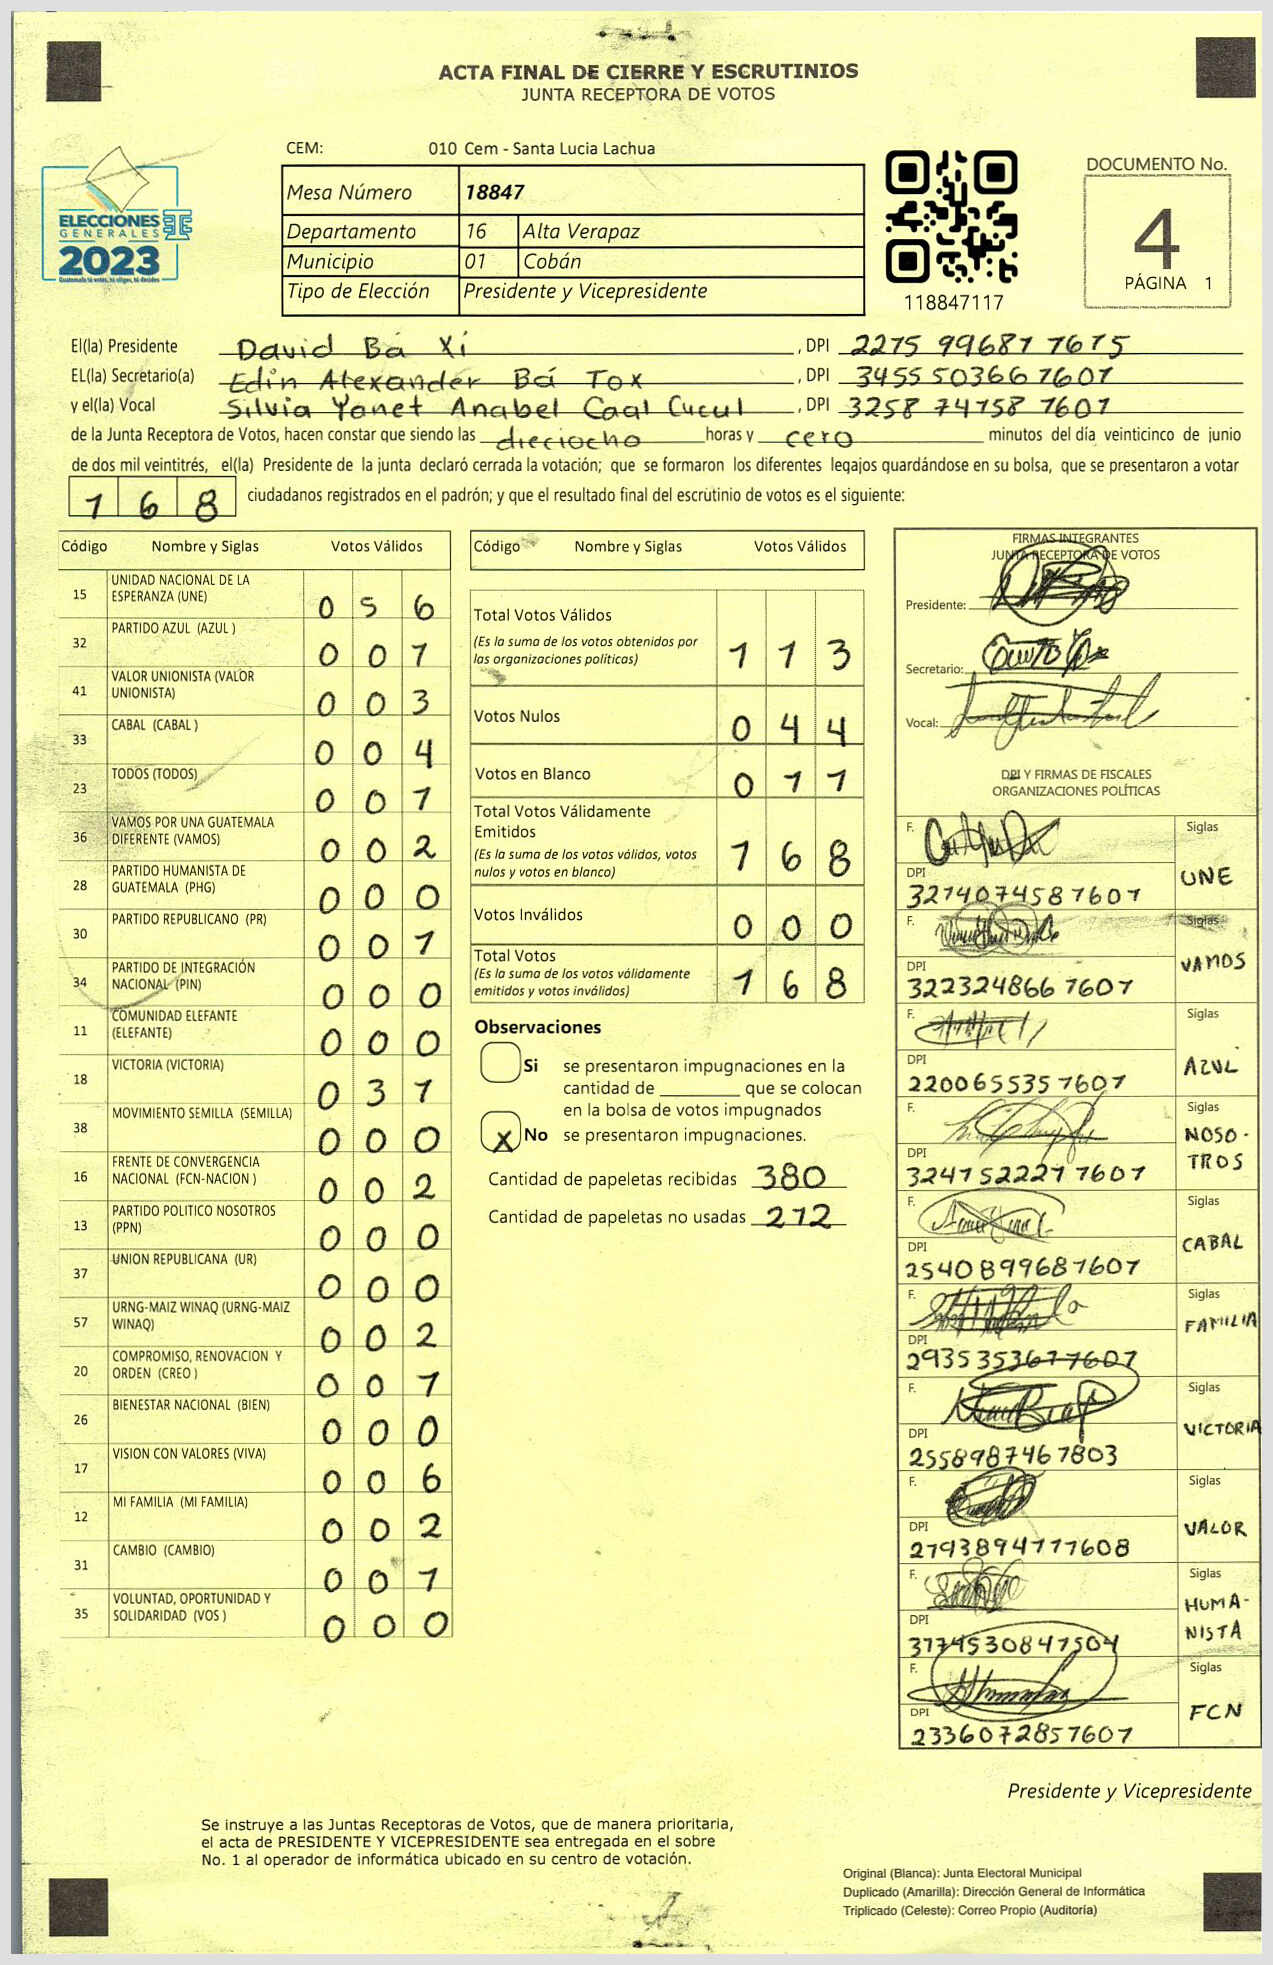 ACTA FINAL DE CIERRE Y ESCRUTINIOS
JUNTA RECEPTORA DE VOTOS
CEM: 010 Cem - Santa Lucia Lachua
ELECCIONES
GENERALES
2023
Mesa Número 18847
Departamento 16 Alta Verapaz
Municipio 01 Cobán
Tipo de Elección Presidente y Vicepresidente
118847117
DOCUMENTO No.
4
PÁGINA 1
El(la) Presidente David Bá Xi , DPI 2275 99687 7675
EL(la) Secretario(a) Edin Alexander Bá Tox , DPI 3455 50366 7607
y el(la) Vocal Silvia Yanet Anabel Caal Cucul , DPI 3258 74758 7607
de la Junta Receptora de Votos, hacen constar que siendo las dieciocho horas y cero minutos del día veinticinco de junio
de dos mil veintitrés, el(la) Presidente de la junta declaró cerrada la votación; que se formaron los diferentes legajos guardándose en su bolsa, que se presentaron a votar
168 ciudadanos registrados en el padrón; y que el resultado final del escrutinio de votos es el siguiente:
Código Nombre y Siglas Votos Válidos
15 UNIDAD NACIONAL DE LA ESPERANZA (UNE) 0 5 6
32 PARTIDO AZUL (AZUL ) 0 0 1
41 VALOR UNIONISTA (VALOR UNIONISTA) 0 0 3
33 CABAL (CABAL ) 0 0 4
23 TODOS (TODOS) 0 0 1
36 VAMOS POR UNA GUATEMALA DIFERENTE (VAMOS) 0 0 2
28 PARTIDO HUMANISTA DE GUATEMALA (PHG) 0 0 0
30 PARTIDO REPUBLICANO (PR) 0 0 1
34 PARTIDO DE INTEGRACIÓN NACIONAL (PIN) 0 0 0
11 COMUNIDAD ELEFANTE (ELEFANTE) 0 0 0
18 VICTORIA (VICTORIA) 0 3 1
38 MOVIMIENTO SEMILLA (SEMILLA) 0 0 0
16 FRENTE DE CONVERGENCIA NACIONAL (FCN-NACION ) 0 0 2
13 PARTIDO POLITICO NOSOTROS (PPN) 0 0 0
37 UNION REPUBLICANA (UR) 0 0 0
57 URNG-MAIZ WINAQ (URNG-MAIZ WINAQ) 0 0 2
20 COMPROMISO, RENOVACION Y ORDEN (CREO ) 0 0 1
26 BIENESTAR NACIONAL (BIEN) 0 0 0
17 VISION CON VALORES (VIVA) 0 0 6
12 MI FAMILIA (MI FAMILIA) 0 0 2
31 CAMBIO (CAMBIO) 0 0 1
35 VOLUNTAD, OPORTUNIDAD Y SOLIDARIDAD (VOS ) 0 0 0
Código Nombre y Siglas Votos Válidos
Total Votos Válidos
(Es la suma de los votos obtenidos por las organizaciones políticas) 1 1 3
Votos Nulos 0 4 4
Votos en Blanco 0 1 1
Total Votos Válidamente Emitidos
(Es la suma de los votos válidos, votos nulos y votos en blanco) 1 6 8
Votos Inválidos 0 0 0
Total Votos
(Es la suma de los votos válidamente emitidos y votos inválidos) 1 6 8
Observaciones
Si se presentaron impugnaciones en la
cantidad de ________ que se colocan
en la bolsa de votos impugnados
X No se presentaron impugnaciones.
Cantidad de papeletas recibidas 380
Cantidad de papeletas no usadas 212
FIRMAS INTEGRANTES
JUNTA RECEPTORA DE VOTOS
Presidente:
Secretario:
Vocal:
DPI Y FIRMAS DE FISCALES
ORGANIZACIONES POLÍTICAS
F. Siglas
DPI 3274074587607 UNE
F. Siglas
DPI 322324866 7607 VAMOS
F. Siglas
DPI 2200655357607 AZUL
F. Siglas
DPI 324752227 7607 NOSO-TROS
F. Siglas
DPI 2540899687607 CABAL
F. Siglas
DPI 2935353677607 FAMILIA
F. Siglas
DPI 2558987467803 VICTORIA
F. Siglas
DPI 2793894777608 VALOR
F. Siglas
DPI 3774530847504 HUMA-NISTA
F. Siglas
DPI 2336072857607 FCN
Presidente y Vicepresidente
Se instruye a las Juntas Receptoras de Votos, que de manera prioritaria,
el acta de PRESIDENTE Y VICEPRESIDENTE sea entregada en el sobre
No. 1 al operador de informática ubicado en su centro de votación.
Original (Blanca): Junta Electoral Municipal
Duplicado (Amarilla): Dirección General de Informática
Triplicado (Celeste): Correo Propio (Auditoría)